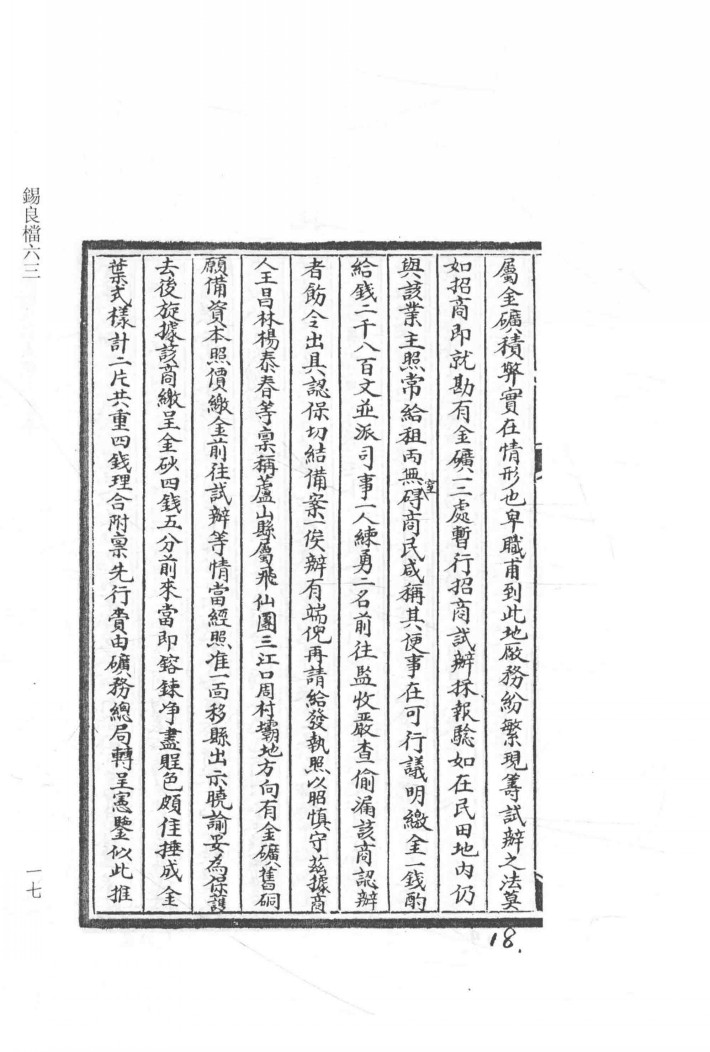 屬金礦積弊實在情形也卑職甫到此地厰務紛繁現籌試辦之法莫
如招商即就勘有金礦一二處暫行招商試辦採報騐如在民田地內仍
與該業主照常給租兩無窒碍商民咸稱其便事在可行議明繳金一錢酌
給錢二千八百文並派司事一人練勇二名前往監收嚴查偷漏該商認辦
者飭令出具認保切結備案一俟辦有端倪再請給發執照以昭慎守茲據商
人王昌林楊泰春等禀稱蘆山縣屬飛仙團三江口周村壩地方向有金礦舊硐
願備資本照價繳金前往試辦等情當經照准一面移縣出示曉諭妥為保護
去後旋據該商繳呈金砂四錢五分前來當即鎔鍊净盡䞓色頗佳捶成金
葉式樣計二片共重四錢理合附禀先行賫由礦務總局轉呈憲鑒似此推
錫良檔六三
一七
18.